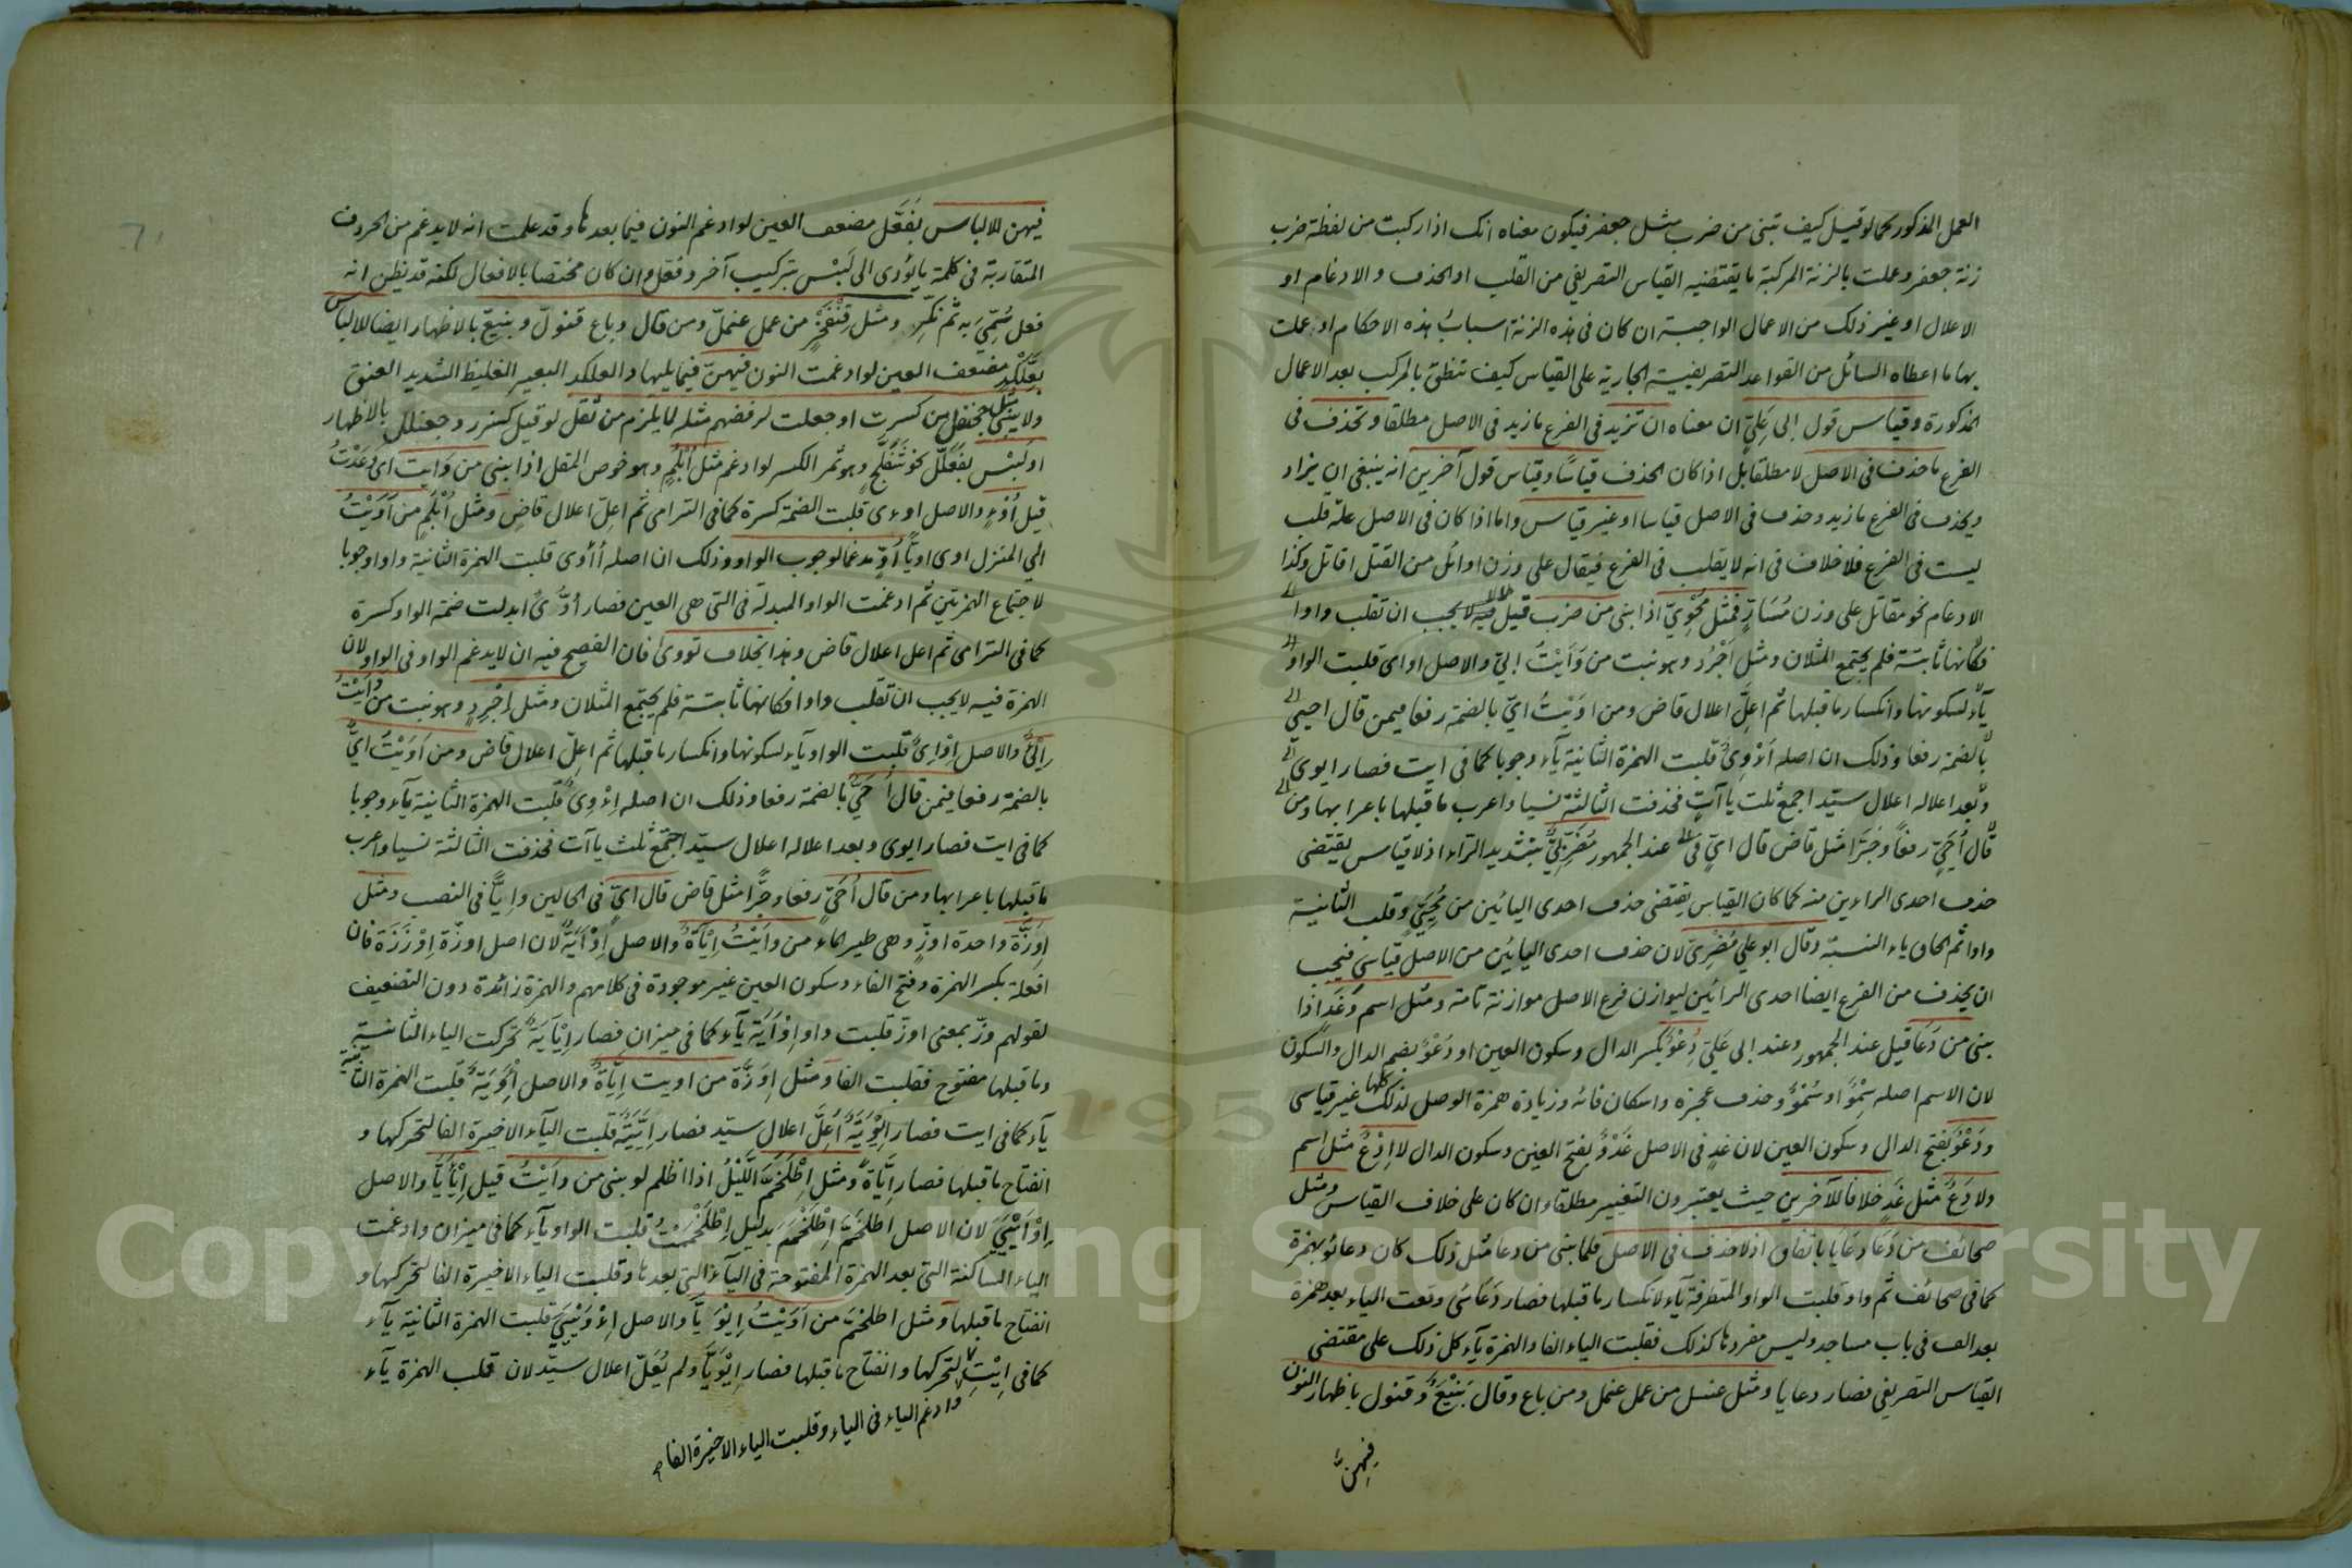 العمل المذكور كما لو قيل كيف تبنى من ضرب مثل جعفر فيكون معناه انك اذا ركبت من لفظة ضرب
زنة جعفر وعملت بالزنة المركبة ما يقتضيه القياس التصريفى من القلب او الحذف والادغام او
الاعلال او غير ذلك من الاعمال الواجبة ان كان فى هذه الزنة اسباب هذه الاحكام او عملت
بها ما اعطاه السائل من القواعد التصريفية الجارية على القياس كيف تنطق بالمركب بعد الاعمال
المذكورة وقياس قول ابى على ان معناه ان تزيد فى الفرع ما زيد فى الاصل مطلقا وتحذف فى
الفرع ما حذف فى الاصل لا مطلقا بل اذا كان الحذف قياسا وقياس قول آخرين انه ينبغى ان يزاد
ويحذف فى الفرع ما زيد وحذف فى الاصل قياسا او غير قياس واما اذا كان فى الاصل علة قلب
ليست فى الفرع فلا خلاف فى انه لا يقلب فى الفرع فيقال على وزن اوائل من القتل اقاتل وكذا
الادغام نحو مقاتل على وزن مُسَارٍّ فمثل مُحْوِىّ اذا بنى من ضرب قيل فيه لا يجب ان تقلب واوا
فكأنها ثابتة فلم يجتمع المثلان ومثل اجرد وهو نبت من وَأَيْتُ إىٍ والاصل اواى قلبت الواو
ياء لسكونها وانكسار ما قبلها ثم اعلّ اعلال قاض ومن اَوَيْتُ اىّ بالضمة رفعا فيمن قال احيى
بالضمة رفعا وذلك ان اصله اؤوى قلبت الهمزة الثانية ياء وجوبا كما فى ايت فصار ايوى
وبعد اعلاله اعلال سيّد اجتمع ثلث ياآت فحذفت الثالثة نسيا واعرب ما قبلها باعرابها ومن
قال أُحَىٍّ رفعا وجرّا مثل قاض قال اىٍّ فى عند الجمهور مُضَرِّبىّ بتشديد الراء اذ لا قياس يقتضى
حذف احدى الراءين منه كما كان القياس يقتضى حذف احدى اليائين من مُحَيِّىٍ وقلب الثانية
واوا ثم الحاق ياء النسبة وقال ابو على مُضَرِىّ لان حذف احدى اليائين من الاصل قياسى فيجب
ان يحذف من الفرع ايضا احدى الرائين ليوازن فرع الاصل موازنة تامة ومثل اسم وغَدٍ اذا
بنى من دَعَا قيل عند الجمهور وعند ابى على دِعْوٌ بكسر الدال وسكون العين او دُعْوٌ بضم الدال والسكون
لان الاسم اصله سِمْوٌ او سُمْوٌ وحذف عجزه واسكان فائه وزيادة همزة الوصل لذلك كلها غير قياسى
ودَعْوٌ بفتح الدال وسكون العين لان غدٍ فى الاصل غَدْوٌ بفتح الغين وسكون الدال لا إدْعٌ مثل اسم
ولا دَعٌ مثل غَدٍ خلافا للآخرين حيث يعتبرون التغيير مطلقا وان كان على خلاف القياس ومثل
صحائف من دَعَا دعَايَا باتفاق اذ لا حذف فى الاصل فلما بنى من دعا مثل ذلك كان دعائو بهمزة
كما فى صحائف ثم واو قلبت الواو المتطرفة ياء لانكسار ما قبلها فصار دَعَائىُ وقعت الياء بعد همزة
بعد الف فى باب مساجد وليس مفردها كذلك فقلبت الياء الفا والهمزة ياء كل ذلك على مقتضى
القياس التصريفى فصار دعايا ومثل عنسل من عمل عنمل ومن باع وقال بَنْيَعٌ وقنول باظهار النون
فيهنّ
فيهن للالباس بفَعَّل مضعف العين لو ادغم النون فيما بعدها وقد علمت انه لا يدغم من الحروف
المتقاربة فى كلمة ما يؤدى الى لَبْس بتركيب آخر وفعّل وان كان مختصا بالافعال لكنه قد يظن انه
فعل سُمِّىَ به ثم نُكِّر ومثل قِنْفَخْرٍ من عمل عنملّ ومن قال وباع قنولّ وبنيعّ بالاظهار ايضا للالباس
بعِلَّكْدٍ مضعف العين لو ادغمت النون فيهنّ فيما يليها والعلكد البعير الغليظ الشديد العنق
ولا يبنى مثل جحنفل من كسرت او جعلت لرفضهم مثله لما يلزم من ثقل لو قيل كسنرر وجعنلل بالاظهار
او لَبْس بفَعَلَّل نحو شَفَلَّحٍ وهو ثمر الكبر لو ادغم مثل أُبْلُمٍ وهو خوص المقل اذا بنى من وَأيت اى وَعَدْتُ
قيل أُوْءٍ والاصل اوءى قلبت الضمة كسرة كما فى الترامى ثم اعلّ اعلال قاضٍ ومثل أُبْلُمٍ من أَوَيْتُ
الى المنزل اوى اويّا أُوٍّ مدغما لوجوب الواو وذلك ان اصله أُأْوُى قلبت الهمزة الثانية واوا وجوبا
لاجتماع الهمزتين ثم ادغمت الواو المبدلة فى التى هى العين فصار أُوُّىٌ ابدلت ضمة الواو كسرة
كما فى الترامى ثم اعل اعلال قاض وهذا بخلاف تووى فان الفصيح فيه ان لا يدغم الواو فى الواو لان
الهمزة فيه لا يجب ان تقلب واوا فكانها ثابتة فلم يجتمع المثلان ومثل اِجْرِدٍ وهو نبت من وَأَيْتُ
إىءٍ والاصل اِوْاِىٌ قلبت الواو ياء لسكونها وانكسار ما قبلها ثم اعلّ اعلال قاض ومن اَوَيْتُ اىٌّ
بالضمة رفعا فيمن قال أُحَىٌّ بالضمة رفعا وذلك ان اصله اِءْوِىٌ قلبت الهمزة الثانية ياء وجوبا
كما فى ايت فصار ايوى وبعد اعلاله اعلال سيّد اجتمع ثلث ياآت فحذفت الثالثة نسيا واعرب
ما قبلها باعرابها ومن قال أُحَىٍّ رفعا وجرّا مثل قاض قال اىٍّ فى الحالين وإيّيا فى النصب ومثل
اِوَزَّة واحدة اوزّ وهى طير الماء من وأَيْتُ إيْآةٌ والاصل اِوْأَيَةٌ لان اصل اوزّة اِوْزَزَة فان
افعلة بكسر الهمزة وفتح الفاء وسكون العين غير موجودة فى كلامهم والهمزة زائدة دون التضعيف
لقولهم وزّ بمعنى اوزّ قلبت واو اِوْأَيَة ياء كما فى ميزان فصار اِيْأَيَةٌ تحركت الياء الثانية
وما قبلها مفتوح فقلبت الفا ومثل اِوَزّة من اويت اِيّاةٌ والاصل اِءْوَيَةٌ قلبت الهمزة الثانية
ياء كما فى ايت فصار اِيْوَيَةٌ أُعِلَّ اعلال سيّد فصار اِيَّيَةٌ قلبت الياء الاخيرة الفا لتحركها و
انفتاح ما قبلها فصار اِيّاةً ومثل اِطْلَخَمَّ اللَّيْلُ اذا اظلم لو بنى من وأَيْتُ قيل اِيْأَيَّا والاصل
اِوْأَيْيَىَ لان الاصل اطلَخَمَّ اِطْلَخْمَمَ بدليل اِطْلَخْمَمْتُ قلبت الواو ياء كما فى ميزان وادغمت
الياء الساكنة التى بعد الهمزة المفتوحة فى الياء التى بعدها وقلبت الياء الاخيرة الفا لتحركها و
انفتاح ما قبلها ومثل اطلخمّ من اَوَيْتُ اِيْوَيَّا والاصل اِءْوَيْيَىَ قلبت الهمزة الثانية ياء
كما فى اِيْتِ لتحركها وانفتاح ما قبلها فصار اِيْوَيَّا ولم يُعَلّ اعلال سيّد لان قلب الهمزة ياء
وادغم الياء فى الياء وقلبت الياء الاخيرة الفا صح
Copyright © King Saud University
195